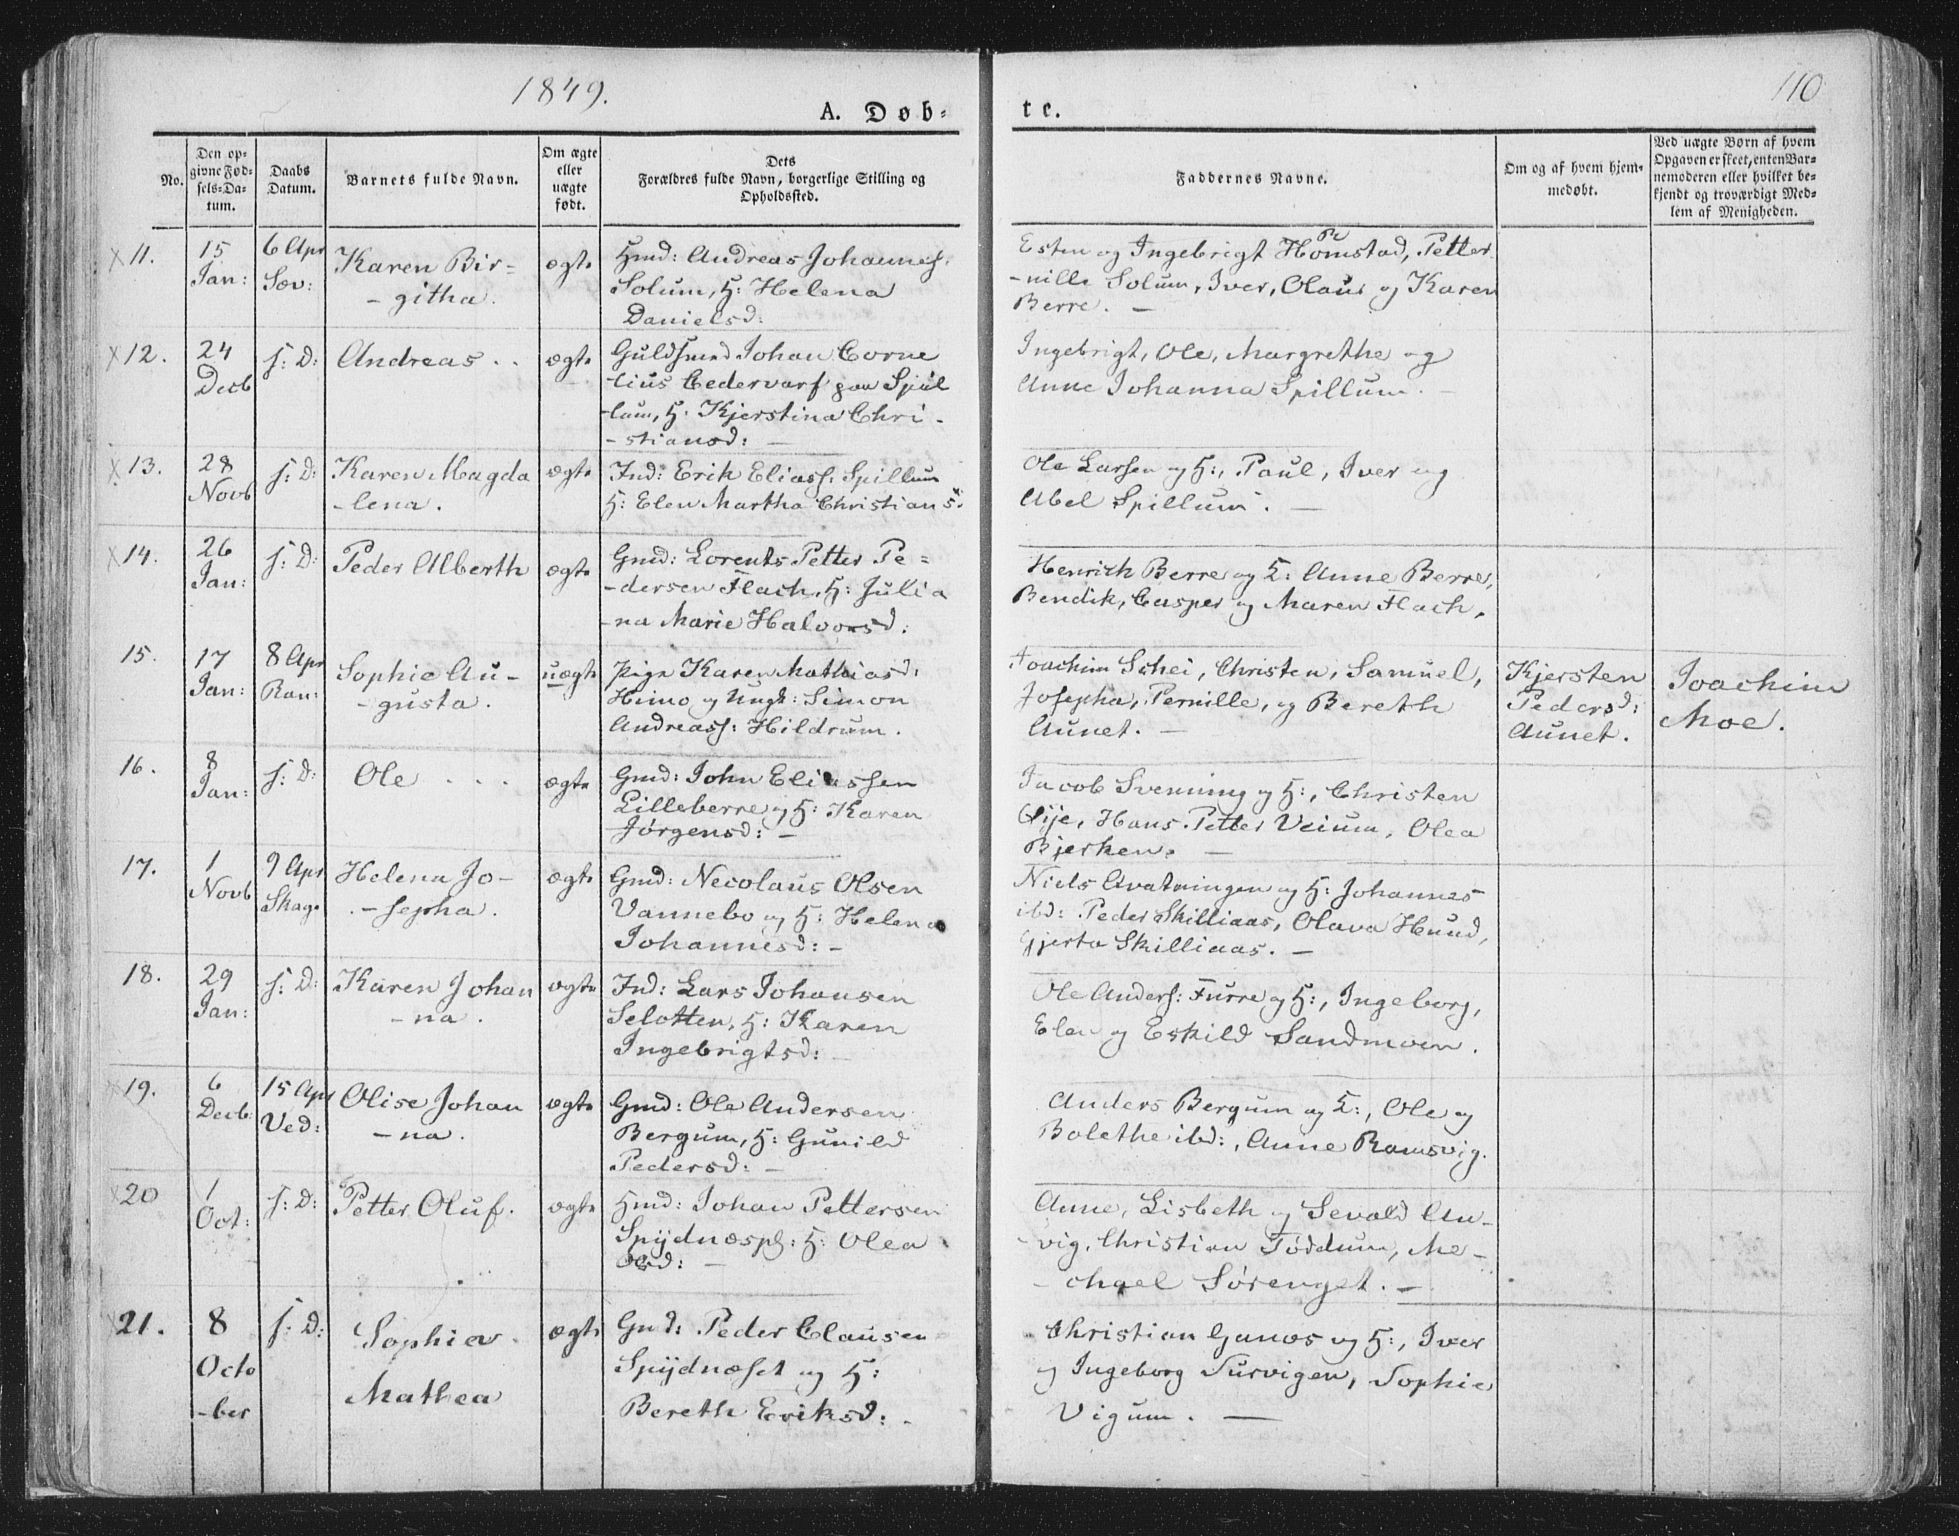 1849.
110
A. Døb-
te.
No.
Den op-
givne Fød-
sels-Da-
tum.
Daabs
Datum.
Barnets fulde Navn.
Om ægte
eller
uægte
født.
Dets
Forældres fulde Navn, borgerlige Stilling og
Opholdssted.
Faddernes Navne.
Om og af hvem hjem-
medøbt.
Ved uægte Børn af hvem
Opgaven er skeet, enten Bar-
nemoderen eller hvilket be-
kjendt og troværdigt Med-
lem af Menigheden.
11.
15
Jan:
6 Apr
Sæv:
Karen Bir-
-githa.
ægte
Hmd: Andreas Johannes.
Solum, H: Helena
Danielsd:
Esten og Ingebrigt Homstad, Petter
Pe
-nille Solum, Iver, Olaus og Karen
Berre. -
12.
24
Decb
s: D:
Andreas . .
ægte
Guldsmed Johan Corne
lius Cedervarf paa Spil
-lum, H: Kjerstina Chri-
-stiansd: -
Ingebrigt, Ole, Margrethe og
Anne Johanna Spillum. -
13.
28
Novb
s: D:
Karen Magda
-lena.
ægte
Ind: Erik Eliass: Spillum
H: Elen Martha Christians
Ole Larsen og H:, Paul, Iver og
Abel Spillum. -
14.
26
Jan:
s: D:
Peder Alberth
ægte
Gmd: Lorents Petter Pe-
-dersen Flach, H: Julia
-na Marie Halvorsd:
Henrich Berre og H: Anne Berre,
Bendik, Casper og Maren Flach.
15.
17
Jan:
8 Apr
Ran:
Sophie Au-
-gusta.
uægte
pige Karen Mathiasd:
Himo og Ungk: Simon
Andreass: Hildrum.
Joachim Schei, Christen, Samuel,
Josepha, Pernille, og Bereth
Aunet. -
Kjersten
Pedersd:
Aunet.
Joachim
Moe.
16.
8
Jan:
s: D:
Ole . . .
ægte
Gmd: John Eliassen
Lilleberre og H: Karen
Jørgensd: -
Jacob Svenning og H:, Christen
Øije, Hans Petter Veium, Olea
Bjerken. -
17.
1
Novb
9 Apr
Skage
Helena Jo-
-sepha.
ægte
Gmd: Necolaus Olsen
Vannebo og H: Helena
Johannesd: -
Niels Qvatningen og H: Johannes
ibd: Peder Skilliaas, Olava Hund,
Gjerta Skilliaas. -
18.
29
Jan:
s: D:
Karen Johan
-na.
ægte
Ind: Lars Johansen
Selotten, H: Karen
Ingebrigtsd:
Ole Anders: Furre og H:, Ingeborg,
Elen og Eskild Sandmoen.
19.
6
Decb:
15 Apr
Ved:
Olise Johan
-na.
ægte
Gmd: Ole Andersen
Bergum, H: Gunild
Pedersd: -
Anders Bergum og H:, Ole og
Bolethe ibd:, Anne Ramsvig.
20
1
Oct:
s: D:
Petter Oluf.
ægte
Hmd: Johan Pettersen
Spijdnæspl: H: Olea
Olsd: -
Anne, Lisbeth og Sevald An-
-vig, Christian Føddum, Me-
-chael Sørenget. -
21.
8
Octo
-ber
s: D:
Sophia
Mathea
ægte
Gmd: Peder Clausen
Spijdnæset og H:
Bereth Eriksd: .
Christian Ganøs og H:, Iver
og Ingeborg Survigen, Sophie
Vigum. -